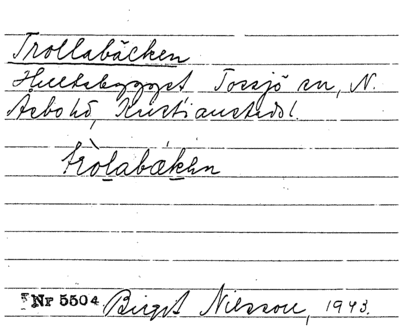 Trollabäcken
Hultabygget Tossjö sn, N.
Åsbo hd, Kristianstads l.
tròlabækən
Nr 5504 Birgit Nilsson, 1943.